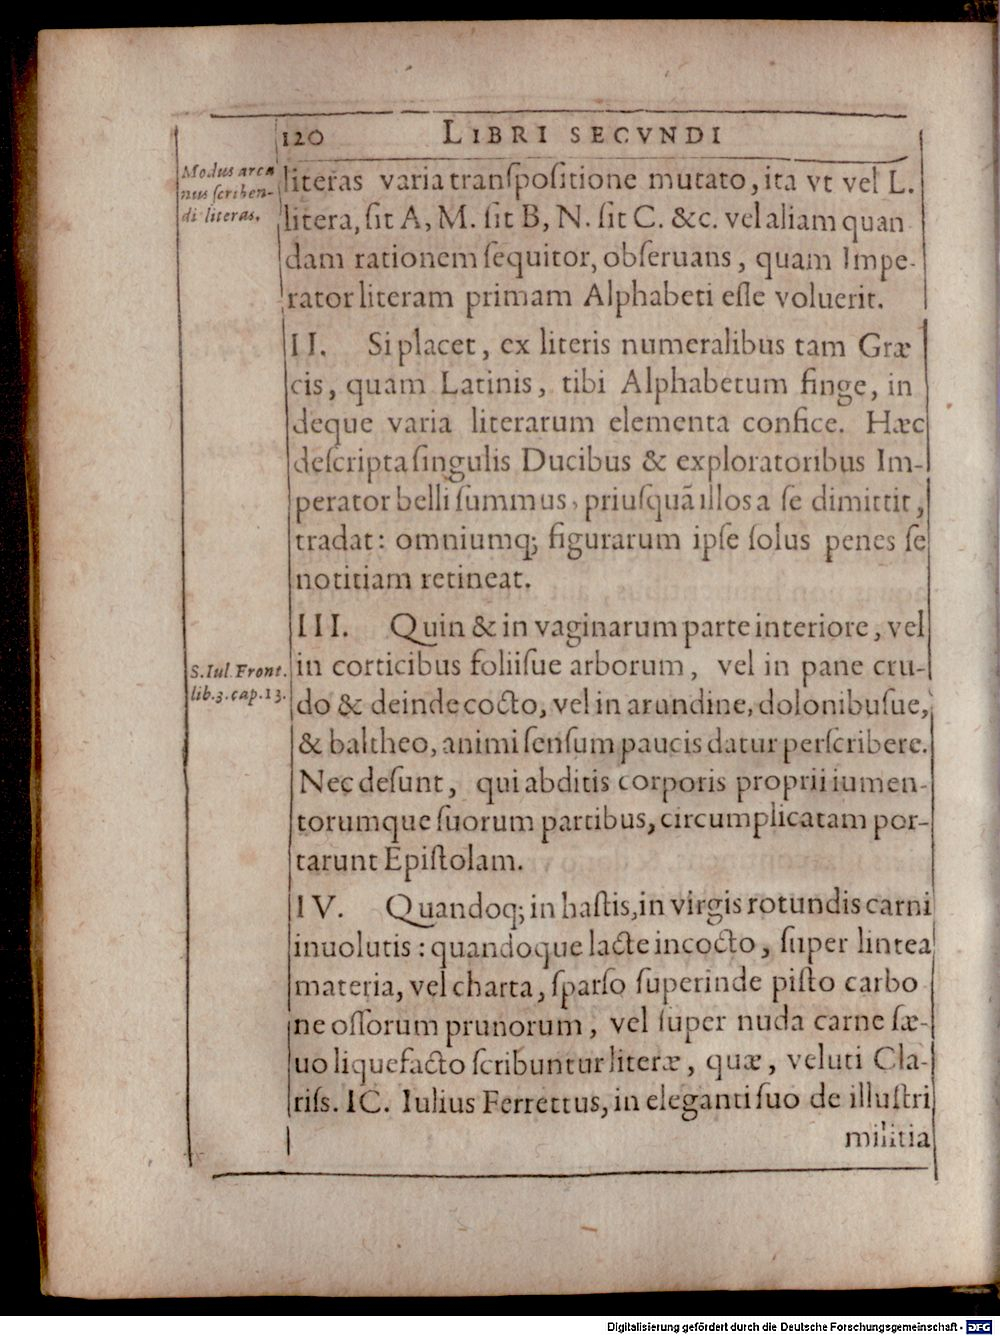 120 LIBRI SECVNDI
Modus arca
nus scriben-
di literas.
literas varia transpositione mutato, ita vt vel L.
litera, sit A, M. sit B, N. sit C. &c. vel aliam quan
dam rationem sequitor, obseruans, quam Impe-
rator literam primam Alphabeti esse voluerit.
II. Si placet, ex literis numeralibus tam Græ
cis, quam Latinis, tibi Alphabetum finge, in
deque varia literarum elementa confice. Hæc
descripta singulis Ducibus & exploratoribus Im-
perator belli summus, priusquã illos a se dimittit,
tradat: omniumq; figurarum ipse solus penes se
notitiam retineat.
III. Quin & in vaginarum parte interiore, vel
S. Iul. Front.
lib. 3. cap. 13.
in corticibus foliisue arborum, vel in pane cru-
do & deinde cocto, vel in arundine, dolonibusue,
& baltheo, animi sensum paucis datur perscribere.
Nec desunt, qui abditis corporis proprii iumen-
torumque suorum partibus, circumplicatam por-
tarunt Epistolam.
IV. Quandoq; in hastis, in virgis rotundis carni
inuolutis: quandoque lacte incocto, super lintea
materia, vel charta, sparso superinde pisto carbo
ne ossorum prunorum, vel super nuda carne sæ-
uo liquefacto scribuntur literæ, quæ, veluti Cla-
riss. IC. Iulius Ferrettus, in eleganti suo de illustri
militia
Digitalisierung gefördert durch die Deutsche Forschungsgemeinschaft - DFG